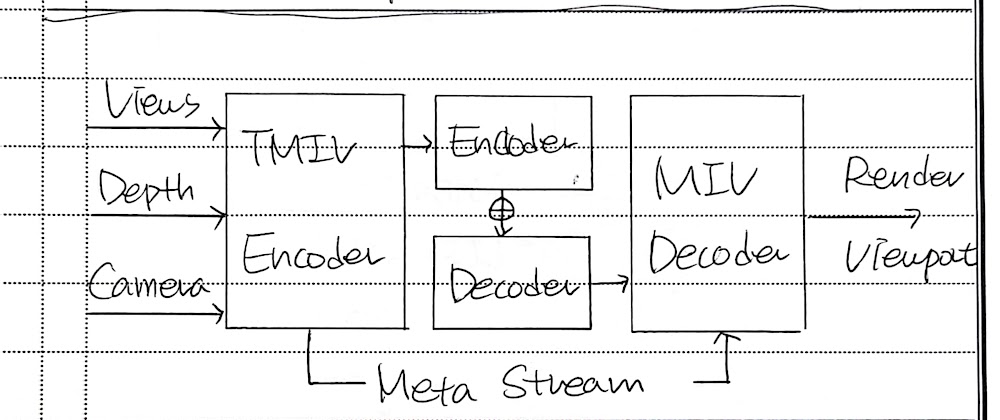 Views
Depth
Camera
TMIV
Encoder
Encoder
Decoder
MIV
Decoder
Render
Viewpot
Meta Stream